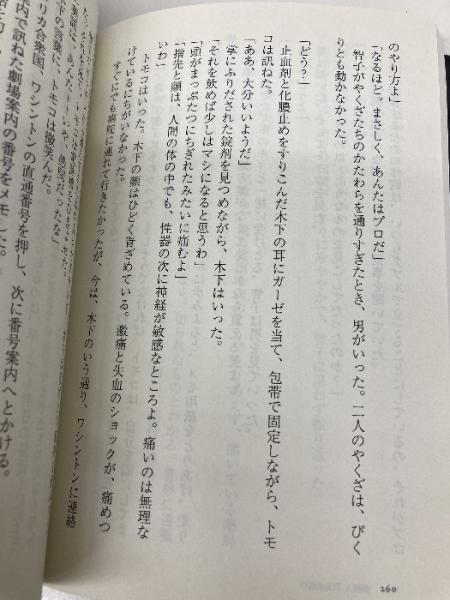 のやり方よ」
「なるほど。まさしく、あんたはプロだ」
智子がやくざたちのかたわらを通りすぎたとき、男がいった。二人のやくざは、ぴく
りとも動かなかった。
「どう？」
止血剤と化膿止めをすりこんだ木下の耳にガーゼを当て、包帯で固定しながら、トモ
コは訊ねた。
「ああ、大分いいようだ」
掌にふりだされた錠剤を見つめながら、木下はいった。
「それを飲めば少しはマシになると思うわ」
「頭がまっぷたつにちぎれたみたいに痛むよ」
「指先と顔は、人間の体の中でも、性器の次に神経が敏感なところよ。痛いのは無理な
いわ」
トモコはいった。木下の顔はひどく青ざめている。激痛と失血のショックが、痛めつ
けているにちがいなかった。
すぐにでも病院に連れて行きたかったが、今は、木下のいう通り、ワシントンに連絡
の言葉に、トモコは微笑んだ。
リカ合衆国、ワシントンの直通番号を押し、次に番号案内へとかける。
内で訊ねた劇場案内の番号をメモした。
160